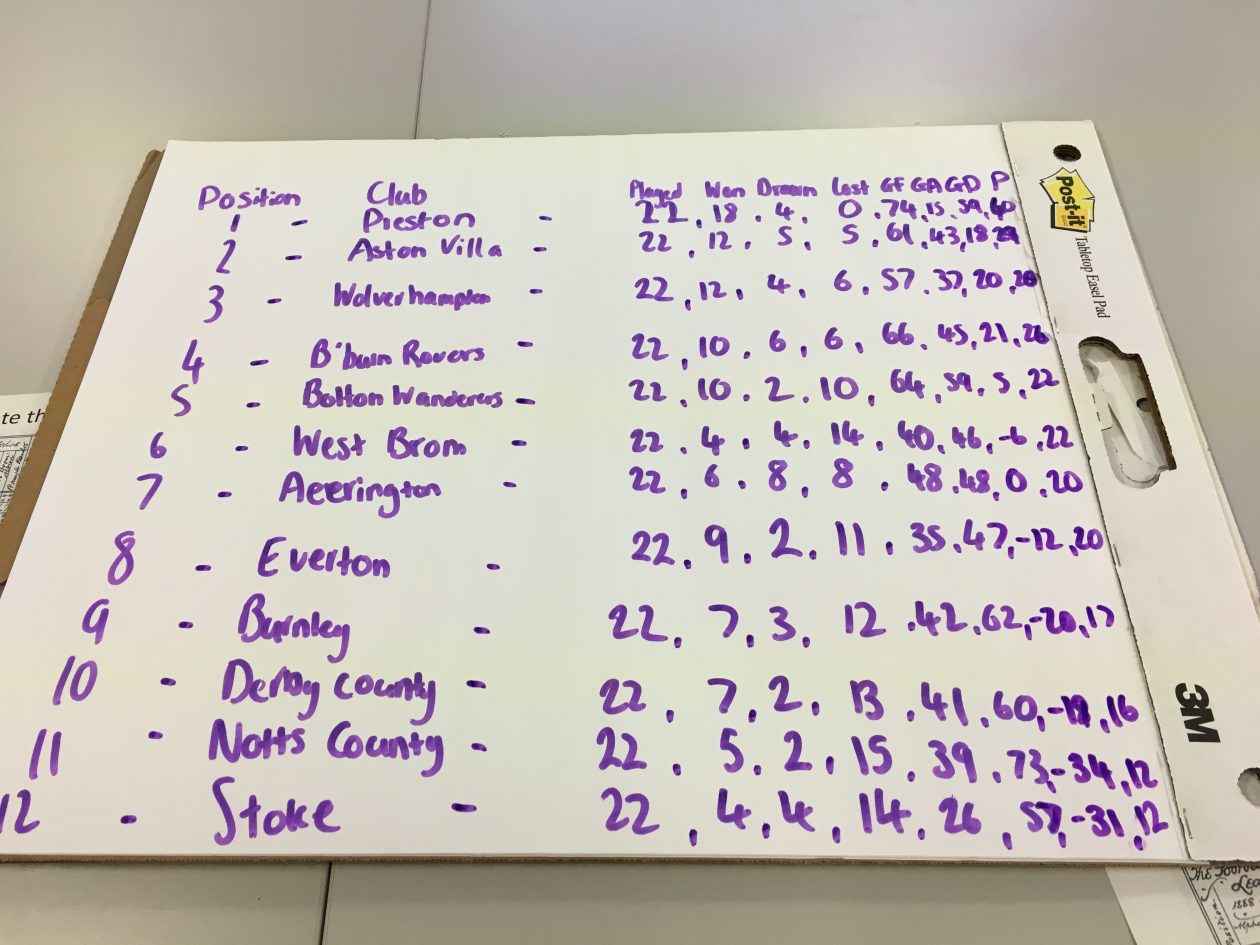 Position Club Played Won Drawn Lost GF GA GD P
1 - Preston - 22, 18. 4, 0. 74, 15, 59, 40
2 - Aston Villa - 22, 12, 5, 5, 61, 43, 18, 29
3 - Wolverhampton - 22, 12, 4, 6, 57, 37, 20, 28
4 - B'burn Rovers - 22, 10. 6, 6, 66. 45, 21, 26
5 - Bolton Wanderers - 22, 10. 2. 10, 64, 59, 5, 22
6 - West Brom - 22. 4. 4. 14. 40, 46, -6, 22
7 - Accrington - 22, 6. 8, 8. 48, 48, 0, 20
8 - Everton - 22. 9. 2. 11. 35. 47, -12, 20
9 - Burnley - 22, 7, 3, 12 .42, 62, -20, 17
10 - Derby County - 22, 7, 2, 13 .41, 60, -19, 16
11 - Notts County - 22. 5. 2, 15. 39. 73, -34, 12
12 - Stoke - 22, 4, 4, 14, 26, 57, -31, 12
Post-it
Tabletop Easel Pad
3M
ete th
1888